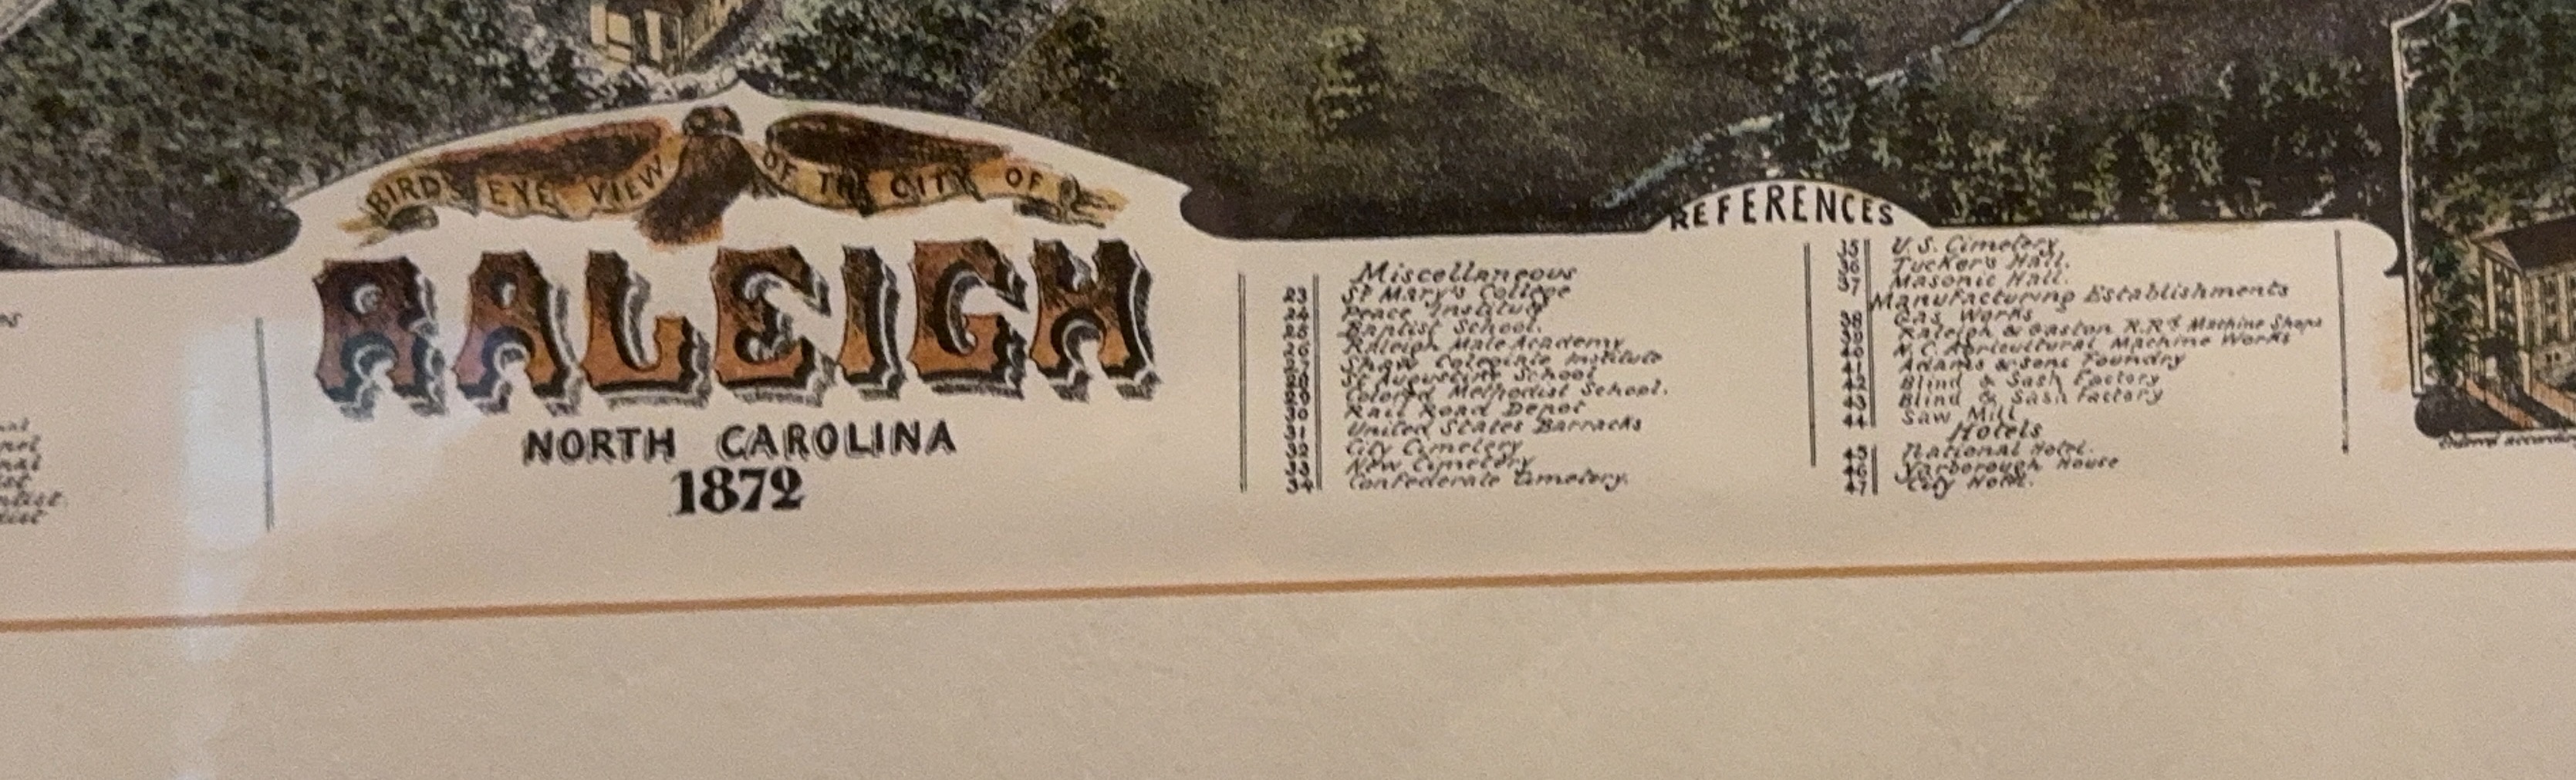 BIRD'S EYE VIEW OF THE CITY OF
RALEIGH
NORTH CAROLINA
1872
REFERENCES
Miscellaneous
23 St Mary's College
24 Peace Institute
25 Baptist School.
26 Raleigh Male Academy
27 Shaw Colegiate Institute
28 St Augustine School
29 Colored Methodist School.
30 Rail Road Depot
31 United States Barracks
32 City Cimetery
33 New Cimetery
34 Confederate Cimetery.
35 U.S. Cimetery,
36 Tucker's Hall.
37 Masonic Hall.
Manufacturing Establishments
38 Gas Works
39 Raleigh & Gaston R.Rd Machine Shops
40 N.C. Agricultural Machine Works
41 Adams & sons Foundry
42 Blind & Sash Factory
43 Blind & Sash Factory
44 Saw Mill
Hotels
45 National Hotel.
46 Yarborough House
47 City Hotel.